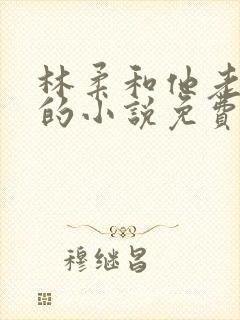 林柔和他走
的小说免費
穆继昌